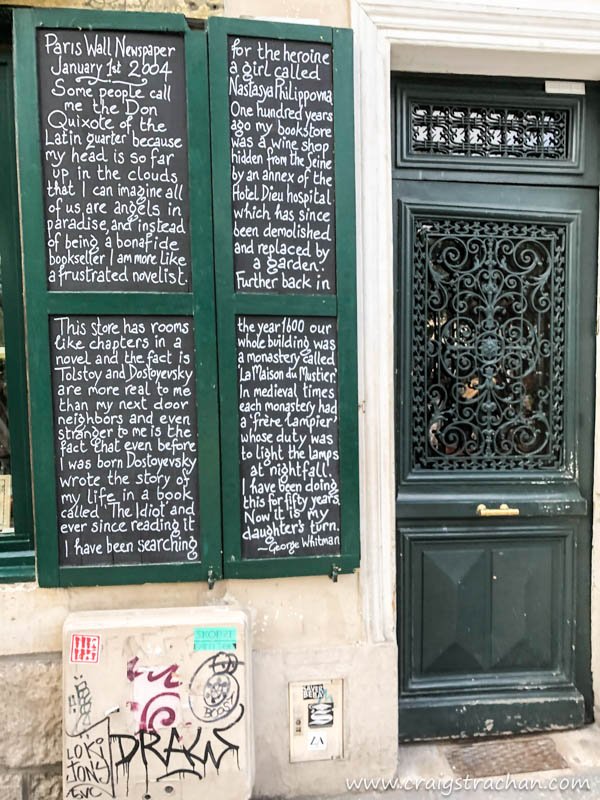 Paris Wall Newspaper
January 1st 2004
Some people call
me the Don
Quixote of the
Latin quarter because
my head is so far
up in the clouds
that I can imagine all
of us are angels in
paradise, and instead
of being a bonafide
bookseller I am more like
a frustrated novelist.
This store has rooms
like chapters in a
novel and the fact is
Tolstoy and Dostoyevsky
are more real to me
than my next door
neighbors and even
stranger to me is the
fact that even before
I was born Dostoyevsky
wrote the story of
my life in a book
called "The Idiot" and
ever since reading it
I have been searching
for the heroine
a girl called
Nastasya Philippovna
One hundred years
ago my bookstore
was a wine shop
hidden from the Seine
by an annex of the
Hotel Dieu hospital
which has since
been demolished
and replaced by
a garden.
Further back in
the year 1600 our
whole building was
a monastery called
'La Maison du Mustier.'
In medieval times
each monastery had
a 'frère lampier'
whose duty was
to light the lamps
at nightfall.
I have been doing
this for fifty years
Now it is my
daughter's turn.
~George Whitman
LOKI
DRAWS
www.craigstrachan.com